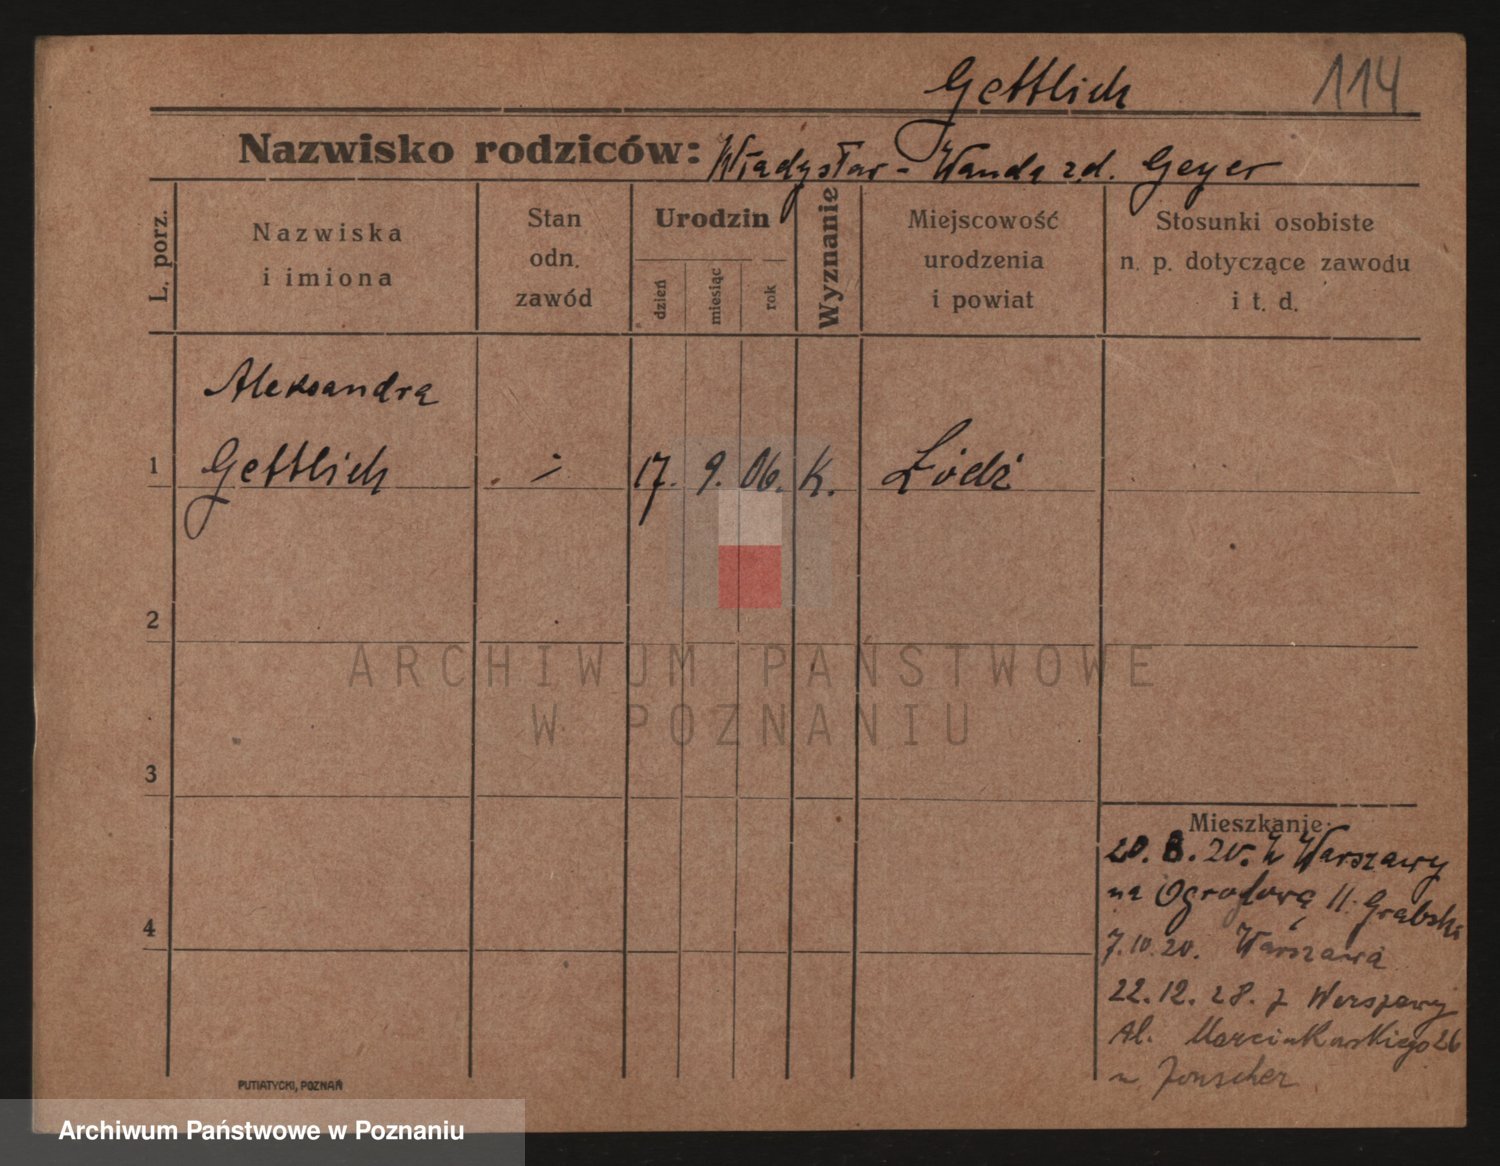 Gettlich 114
Nazwisko rodziców: Władysław - Wanda zd. Geyer
L. porz.
Nazwiska
i imiona
Stan
odn.
zawód
Urodzin
dzień
miesiąc
rok
Wyznanie
Miejscowość
urodzenia
i powiat
Stosunki osobiste
n. p. dotyczące zawodu
i t. d.
Aleksandra
1 Gettlich 17. 9. 06. K. Łódź
2
ARCHIWUM PAŃSTWOWE
W POZNANIU
3
4
Mieszkanie:
20. 8. 20. z Warszawy
na Ogrodową 11. Grabski
7.10.20. Warszawa
22.12.28. z Warszawy
Al. Marcinkowskiego 26
u Jonscher
PUTIATYCKI, POZNAŃ
Archiwum Państwowe w Poznaniu